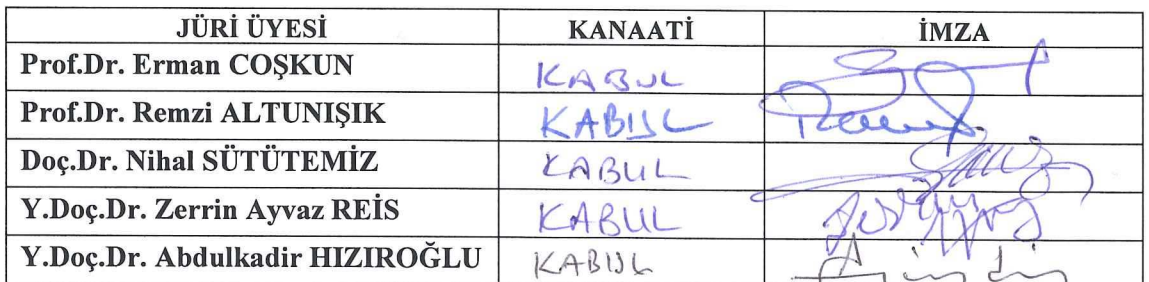 JÜRİ ÜYESİ KANAATİ İMZA
Prof.Dr. Erman COŞKUN KABUL
Prof.Dr. Remzi ALTUNIŞIK KABUL
Doç.Dr. Nihal SÜTÜTEMİZ KABUL
Y.Doç.Dr. Zerrin Ayvaz REİS KABUL
Y.Doç.Dr. Abdulkadir HIZIROĞLU KABUL